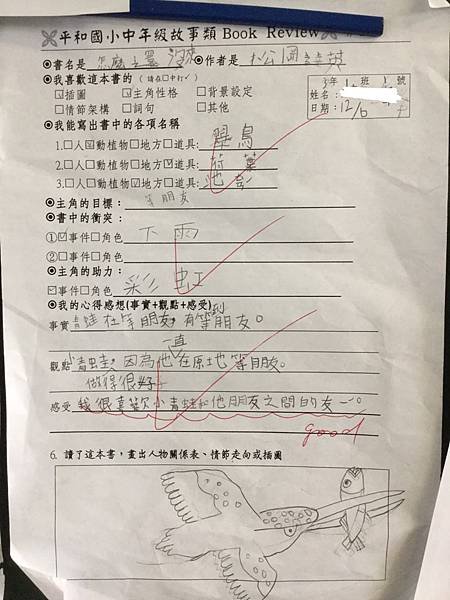 平和國小中年級故事類 Book Review
◎書名是 怎麼 還 沒來 ◎作者是 松岡 達英
◎我喜歡這本書的 (請在□中打✓)
☑插圖 ☑主角性格 □背景設定
□情節架構 □詞句 □其他
3年1班 號
姓名:
日期:12/6
◎我能寫出書中的各項名稱
1.□人☑動植物□地方□道具: 翠鳥
2.□人□動植物□地方☑道具: 葉
3.□人□動植物☑地方□道具: 池
◎主角的目標: 等朋友
◎書中的衝突:
①☑事件□角色 下雨
②□事件□角色
◎主角的助力:
☑事件□角色 彩虹
◎我的心得感想(事實+觀點+感受)
事實 青蛙在等朋友,有等到朋友。
觀點 小青蛙,因為他一直在原地等朋友。
做得很好
感受 我很喜歡小青蛙和他朋友之間的友一。
good
6. 讀了這本書,畫出人物關係表、情節走向或插圖